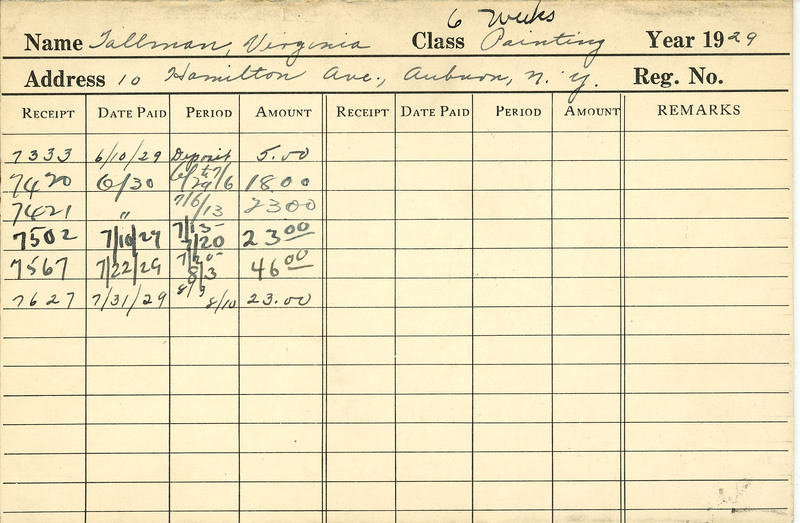 6 Weeks
Name Tallman, Virginia Class Painting Year 1929
Address 10 Hamilton Ave., Auburn, N. Y. Reg. No.
RECEIPT DATE PAID PERIOD AMOUNT RECEIPT DATE PAID PERIOD AMOUNT REMARKS
7333 6/10/29 Deposit 5.00
7420 6/30 6/29 to 7/6 18 00
7421 " 7/6/13 23 00
7502 7/10/29 7/13- 7/20 23 00
7567 7/22/29 7/20- 8/3 46 00
7627 7/31/29 8/3 8/10 23.00